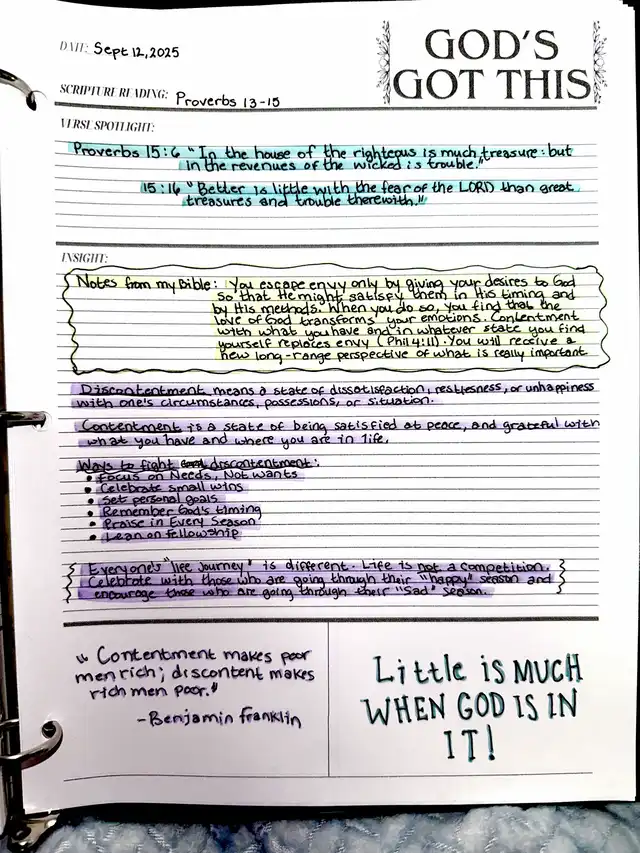 DATE: Sept 12, 2025
GOD'S
GOT THIS
SCRIPTURE READING: Proverbs 13-15
VERSE SPOTLIGHT:
Proverbs 15:6 "In the house of the righteous is much treasure: but
in the revenues of the wicked is trouble."
15:16 "Better is little with the fear of the LORD than great
treasures and trouble therewith."
INSIGHT:
Notes from my Bible: You escape envy only by giving your desires to God
so that He might satisfy them in His timing and
by His methods. When you do so, you find that the
love of God transforms your emotions. Contentment
with what you have and in whatever state you find
yourself replaces envy (Phil 4:11). You will receive a
new long-range perspective of what is really important.
Discontentment means a state of dissatisfaction, restlesness, or unhappiness
with one's circumstances, possessions, or situation.
Contentment is a state of being satisfied at peace, and grateful with
what you have and where you are in life.
Ways to fight discontentment:
• Focus on Needs, Not wants
• Celebrate small wins
• Set personal goals
• Remember God's timing
• Praise in Every Season
• Lean on fellowship
Everyone's "life journey" is different. Life is not a competition.
Celebrate with those who are going through their "happy" season and
encourage those who are going through their "sad" season.
"Contentment makes poor
men rich; discontent makes
rich men poor."
-Benjamin Franklin
Little is MUCH
WHEN GOD IS IN
IT!